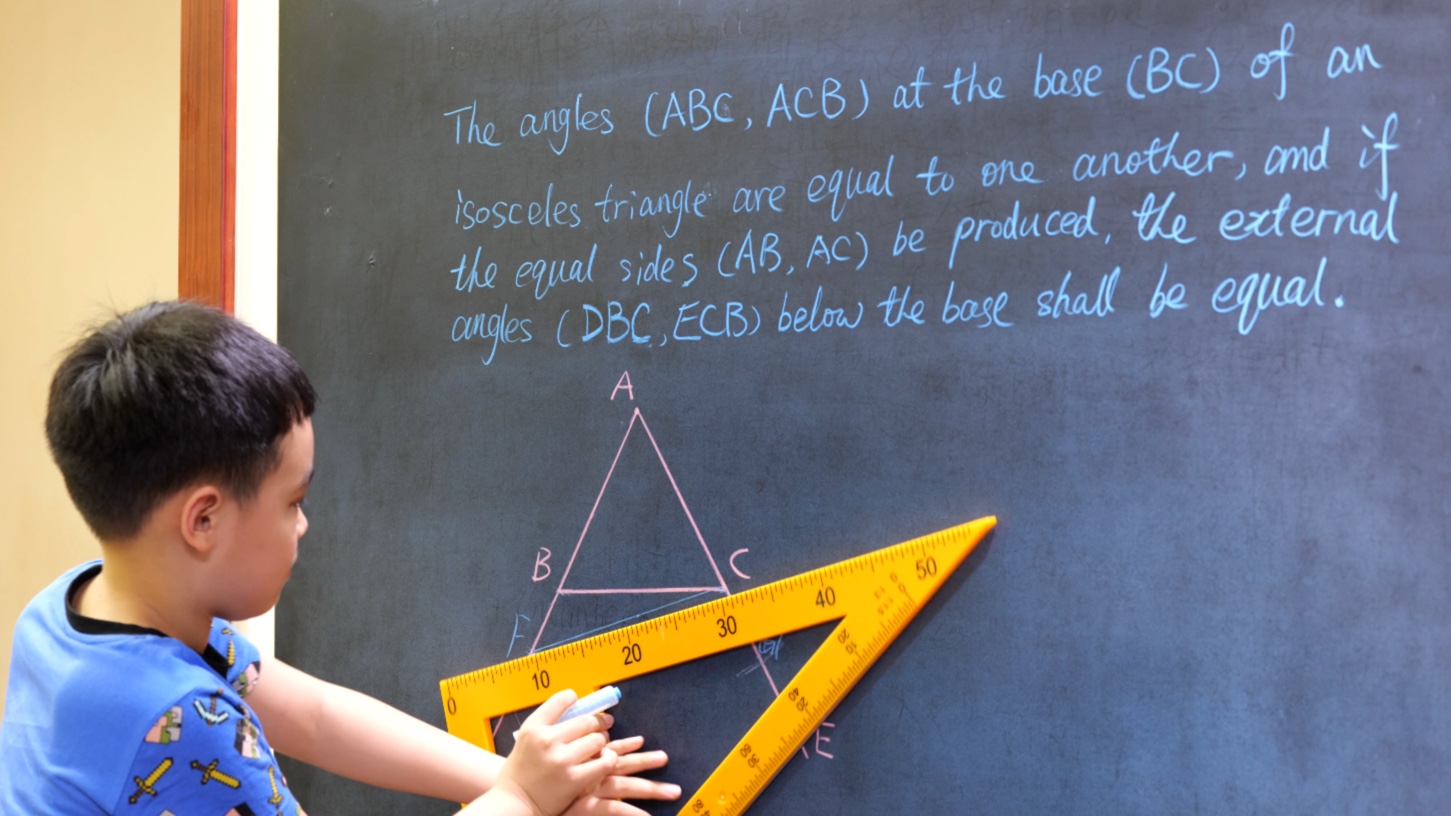 The angles (ABC, ACB) at the base (BC) of an
isosceles triangle are equal to one another, and if
the equal sides (AB, AC) be produced, the external
angles (DBC, ECB) below the base shall be equal.
A
B
C
F
E
0 10 20 30 40 50